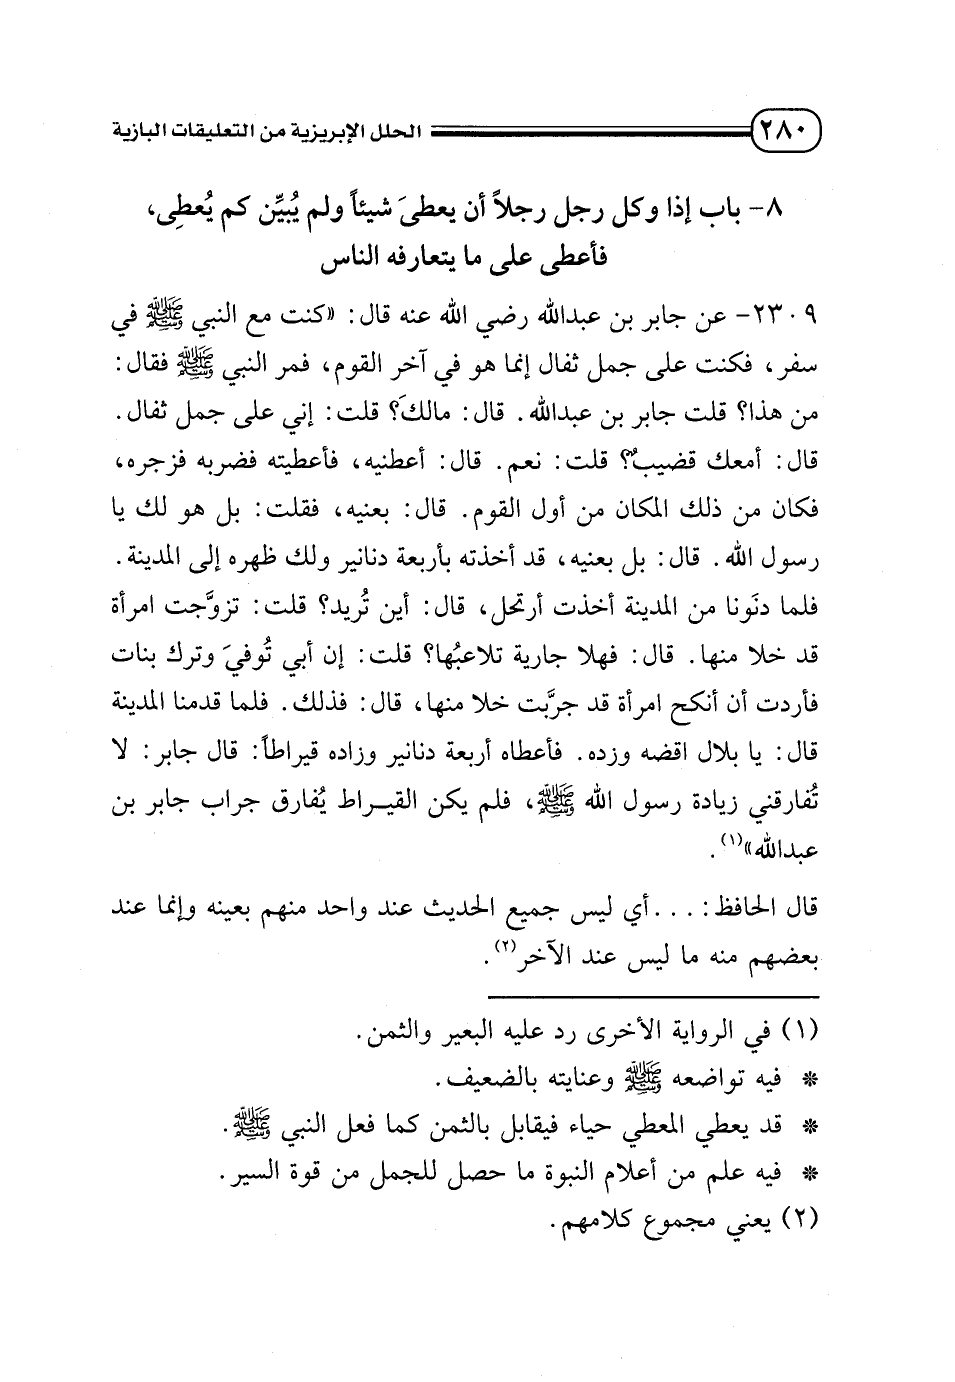 ٢٨٠ الحلل الإبريزية من التعليقات البازية
٨- باب إذا وكل رجل رجلاً أن يعطيَ شيئاً ولم يُبيِّن كم يُعطِي،
فأعطى على ما يتعارفه الناس
٢٣٠٩- عن جابر بن عبدالله رضي الله عنه قال: «كنت مع النبي ﷺ في
سفر، فكنت على جمل ثفال إنما هو في آخر القوم، فمر النبي ﷺ فقال:
من هذا؟ قلت جابر بن عبدالله. قال: مالكَ؟ قلت: إني على جمل ثفال.
قال: أمعك قضيبٌ؟ قلت: نعم. قال: أعطنيه، فأعطيته فضربه فزجره،
فكان من ذلك المكان من أول القوم. قال: بعنيه، فقلت: بل هو لك يا
رسول الله. قال: بل بعنيه، قد أخذته بأربعة دنانير ولك ظهره إلى المدينة.
فلما دنَونا من المدينة أخذت أرتحل، قال: أين تُريد؟ قلت: تزوَّجت امرأة
قد خلا منها. قال: فهلا جارية تلاعبُها؟ قلت: إن أبي تُوفيَ وترك بنات
فأردت أن أنكح امرأة قد جرَّبت خلا منها، قال: فذلك. فلما قدمنا المدينة
قال: يا بلال اقضه وزده. فأعطاه أربعة دنانير وزاده قيراطاً: قال جابر: لا
تُفارقني زيادة رسول الله ﷺ، فلم يكن القيـراط يُفارق جراب جابر بن
عبدالله»(١).
قال الحافظ: . . . أي ليس جميع الحديث عند واحد منهم بعينه وإنما عند
بعضهم منه ما ليس عند الآخر(٢).
(١) في الرواية الأخرى رد عليه البعير والثمن.
* فيه تواضعه ﷺ وعنايته بالضعيف.
* قد يعطي المعطي حياء فيقابل بالثمن كما فعل النبي ﷺ.
* فيه علم من أعلام النبوة ما حصل للجمل من قوة السير.
(٢) يعني مجموع كلامهم.